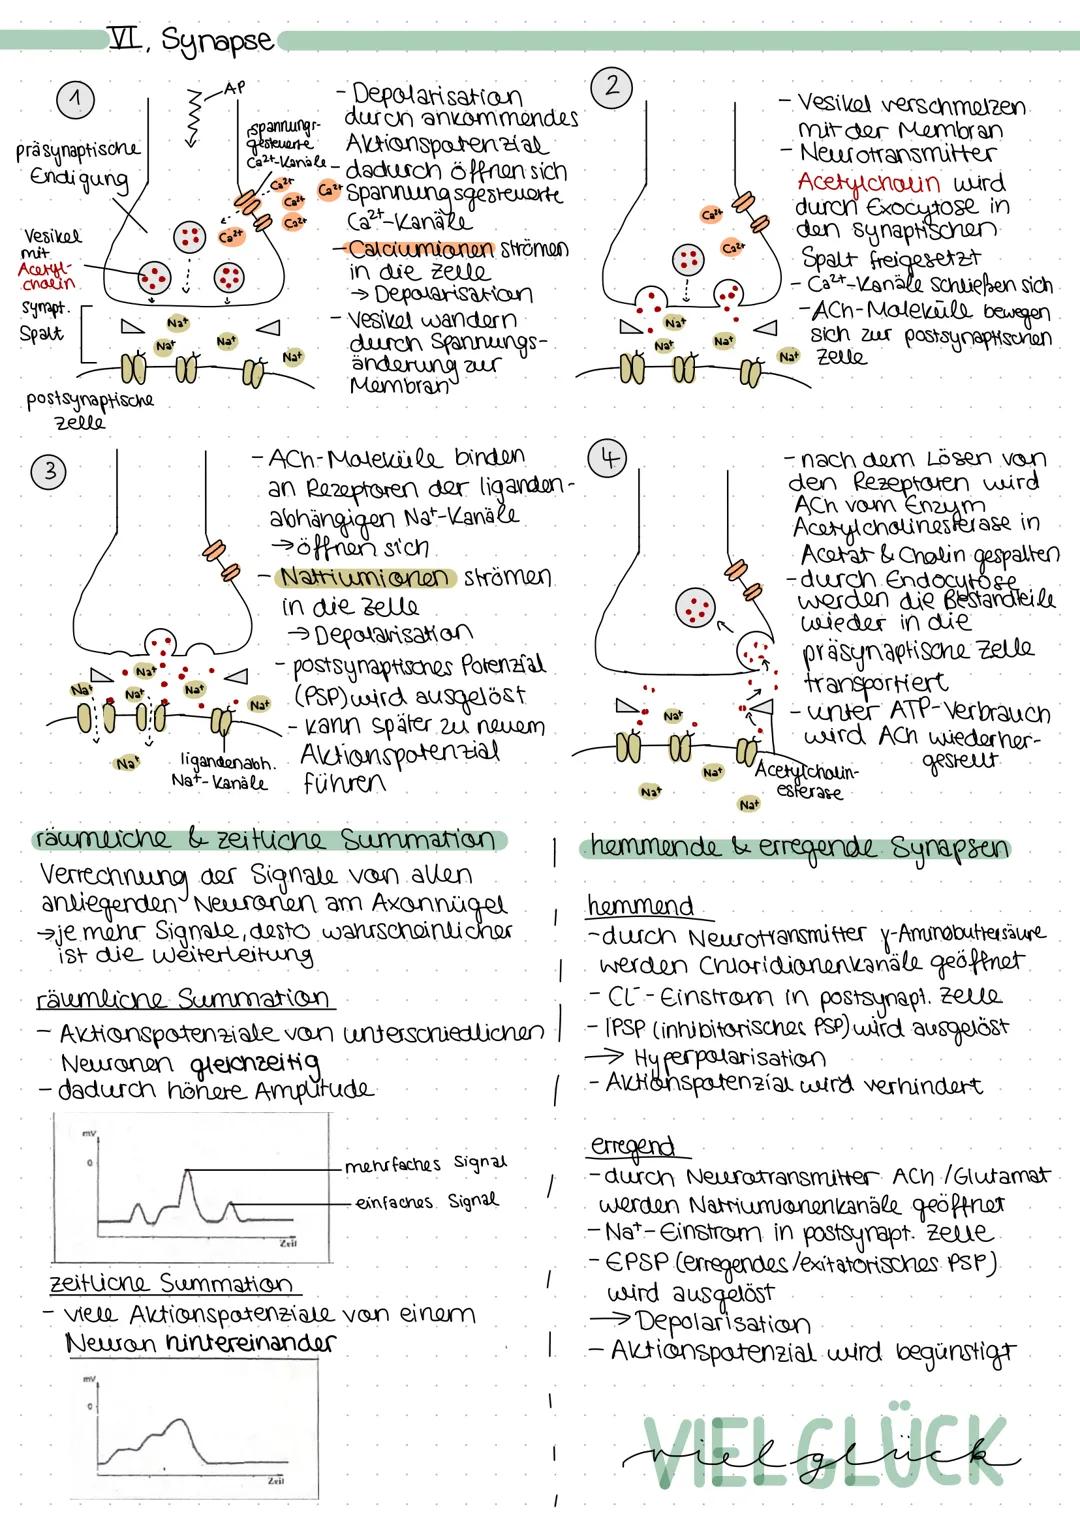 VI, Synapse
1
AP
präsynaptische
Endigung
spannungs-
gesteuerte
Ca2+-Kanäle
Ca2+
Ca2+
Ca2+
Ca2+
Ca2+
Vesikel
mit
Acetyl-
cholin
synapt.
Spalt
Na+
Na+
Na+
Na+
postsynaptische
Zelle
- Depolarisation
durch ankommendes
Aktionspotenzial
- dadurch öffnen sich
Spannungsgesteuerte
Ca2+-Kanäle
- Calciumionen strömen
in die Zelle
→ Depolarisation
- Vesikel wandern
durch Spannungs-
änderung zur
Membran
2
Ca2+
Ca2+
Na+
Na+
Na+
Na+
- Vesikel verschmelzen
mit der Membran
- Neurotransmitter
Acetylcholin wird
durch Exocytose in
den synaptischen
Spalt freigesetzt
- Ca2+-Kanäle schließen sich
- ACh-Moleküle bewegen
sich zur postsynaptischen
Zelle
3
Na+
Na+
Na+
Na+
Na+
Na+
ligandenabh.
Na+-Kanäle
- ACh-Moleküle binden
an Rezeptoren der liganden-
abhängigen Na+-Kanäle
→ öffnen sich
- Natriumionen strömen
in die Zelle
→ Depolarisation
- postsynaptisches Potenzial
(PSP) wird ausgelöst
- kann später zu neuem
Aktionspotenzial
führen
4
Na+
Na+
Na+
Na+
Acetylcholin-
esterase
- nach dem Lösen von
den Rezeptoren wird
ACh vom Enzym
Acetylcholinesterase in
Acetat & Cholin gespalten
- durch Endocytose
werden die Bestandteile
wieder in die
präsynaptische Zelle
transportiert
- unter ATP-Verbrauch
wird ACh wiederher-
gestellt
räumliche & zeitliche Summation
Verrechnung der Signale von allen
anliegenden Neuronen am Axonhügel
→ je mehr Signale, desto wahrscheinlicher
ist die Weiterleitung
räumliche Summation
- Aktionspotenziale von unterschiedlichen
Neuronen gleichzeitig
- dadurch höhere Amplitude
mV
0
Zeit
mehrfaches Signal
einfaches Signal
zeitliche Summation
- viele Aktionspotenziale von einem
Neuron hintereinander
mV
0
Zeit
hemmende & erregende Synapsen
hemmend
- durch Neurotransmitter γ-Aminobuttersäure
werden Chloridionenkanäle geöffnet
- CL⁻-Einstrom in postsynapt. Zelle
- IPSP (inhibitorisches PSP) wird ausgelöst
→ Hyperpolarisation
- Aktionspotenzial wird verhindert
erregend
- durch Neurotransmitter ACh / Glutamat
werden Natriumionenkanäle geöffnet
- Na+-Einstrom in postsynapt. Zelle
- EPSP (erregendes/exitatorisches PSP)
wird ausgelöst
→ Depolarisation
- Aktionspotenzial wird begünstigt
VIEL GLÜCK
viel glück